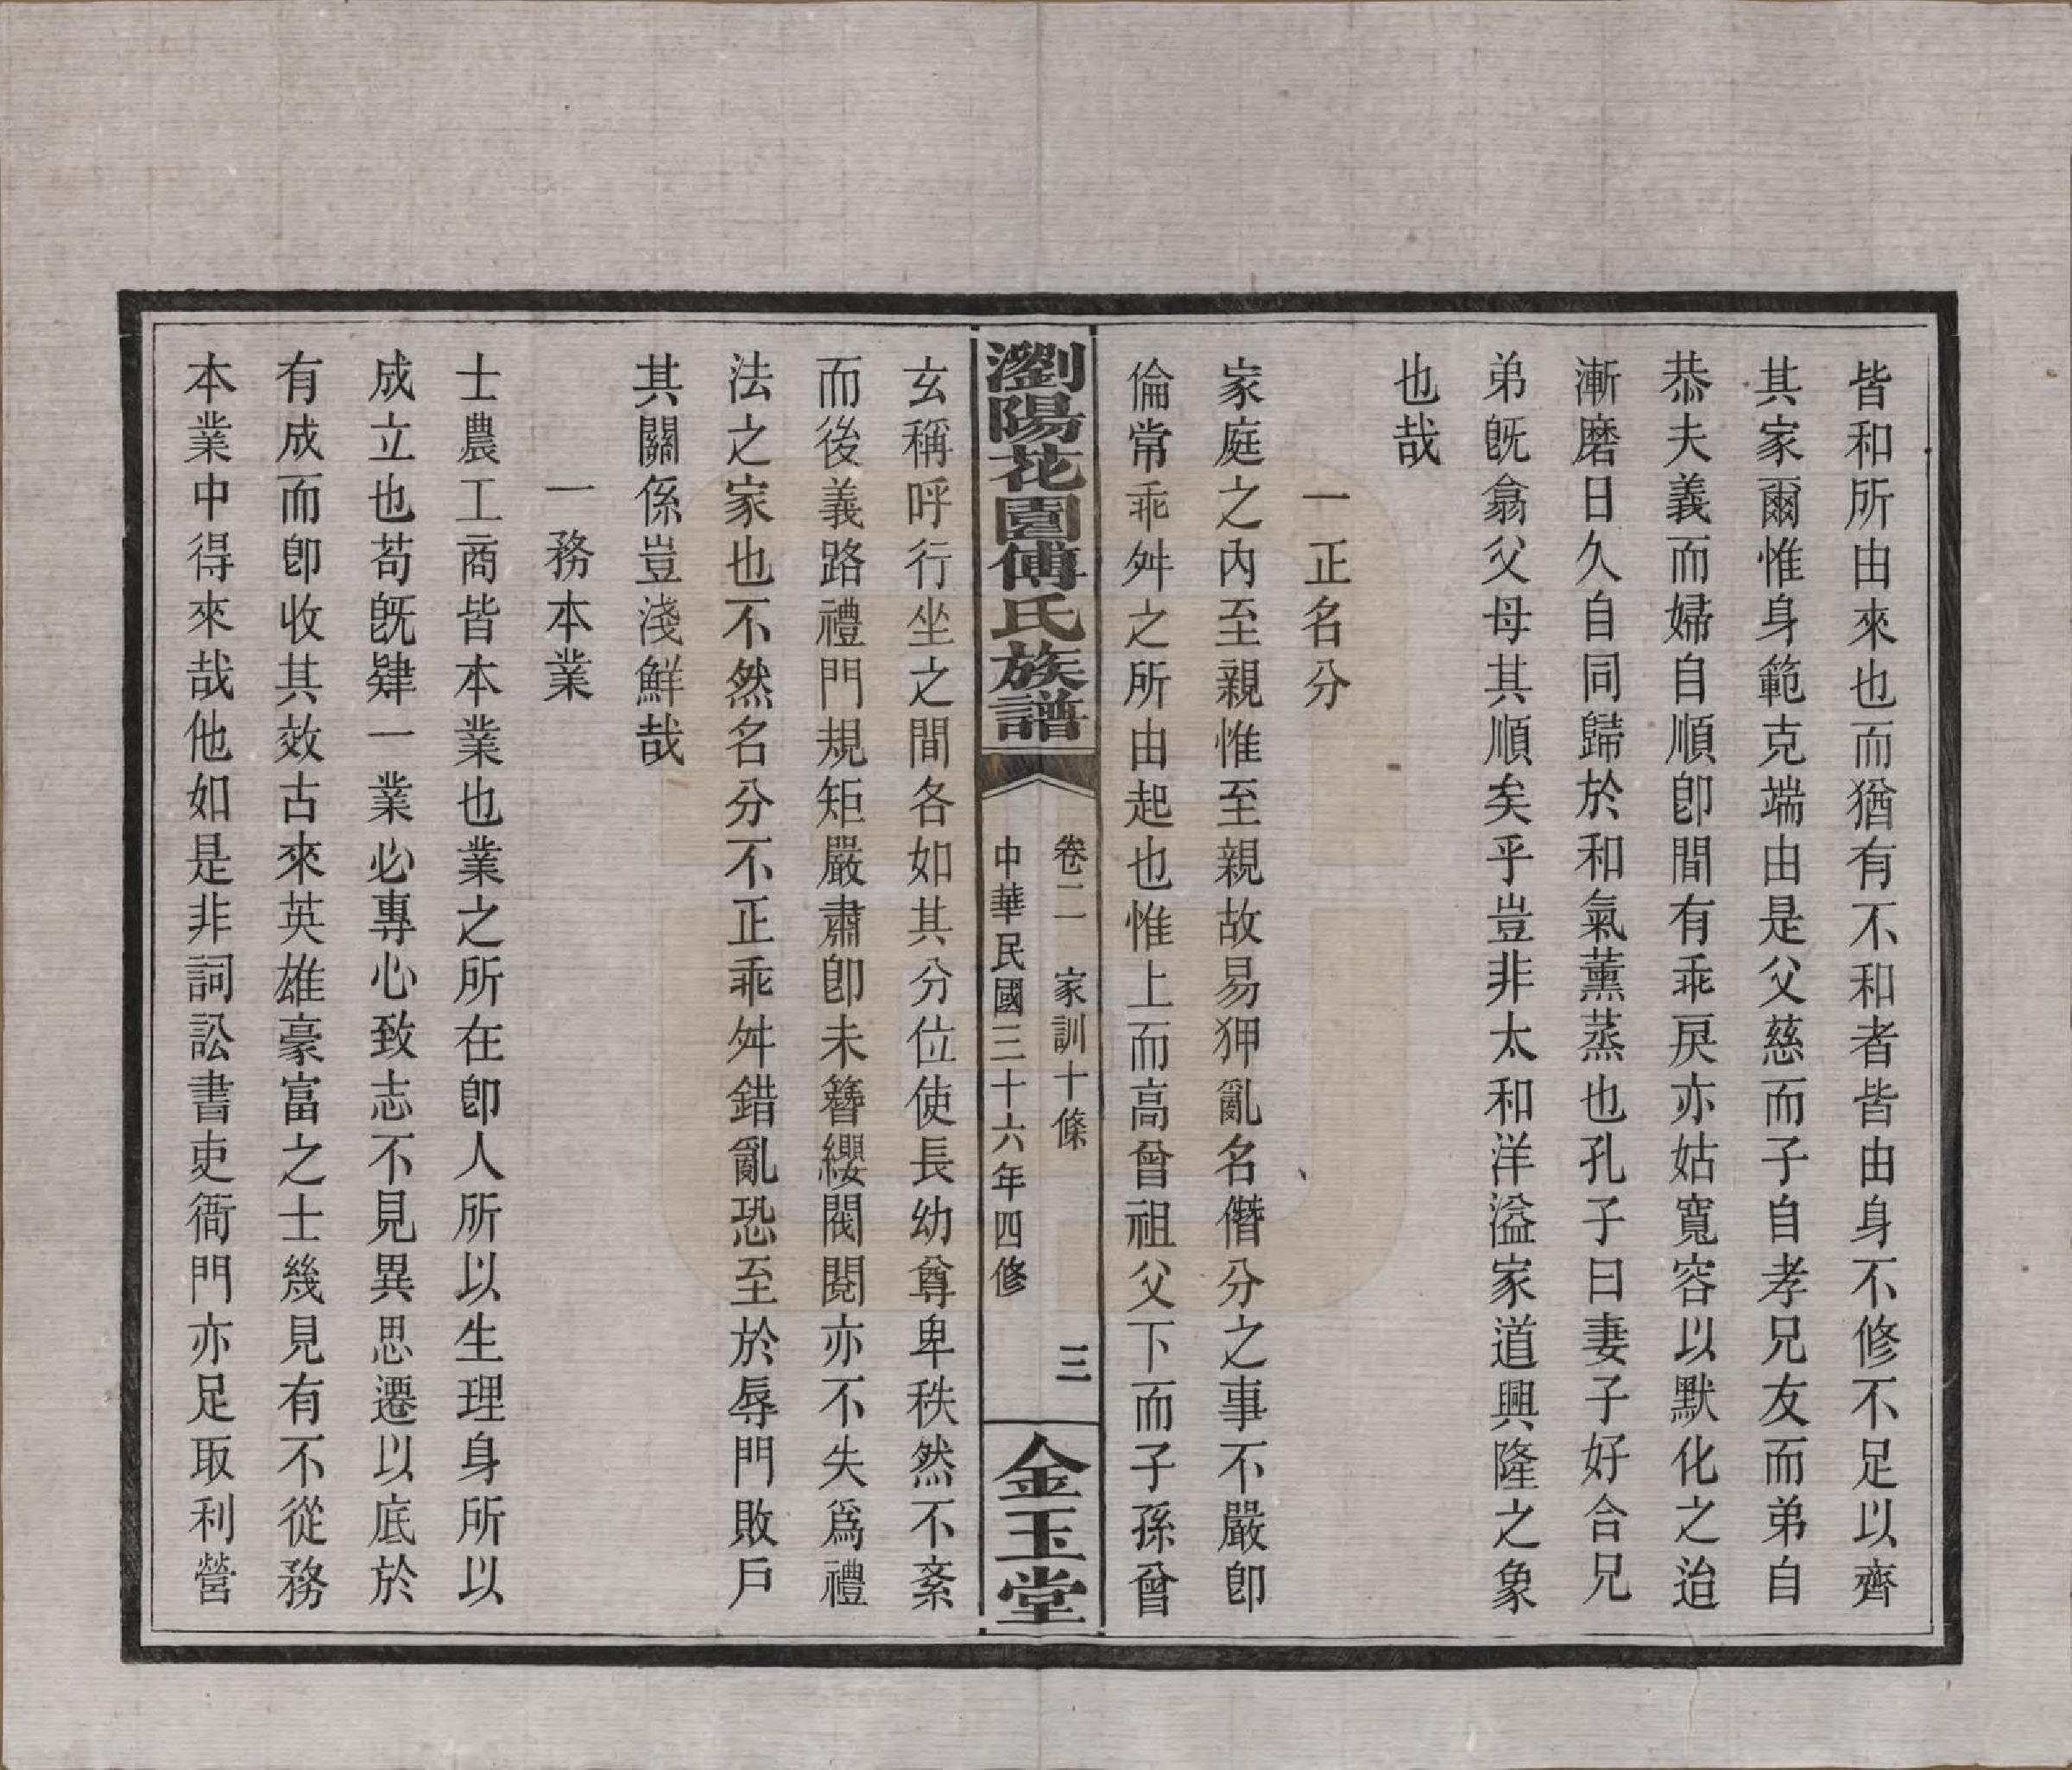 皆和所由來也而猶有不和者皆由身不修不足以齊
其家爾惟身範克端由是父慈而子自孝兄友而弟自
恭夫義而婦自順卽間有乖戾亦姑寬容以默化之迨
漸磨日久自同歸於和氣薰蒸也孔子曰妻子好合兄
弟旣翕父母其順矣乎豈非太和洋溢家道興隆之象
也哉
一正名分
家庭之內至親惟至親故易狎亂名僭分之事不嚴卽
倫常乖舛之所由起也惟上而高曾祖父下而子孫曾
瀏陽花園傅氏族譜
卷二 家訓十條 三
中華民國三十六年四修
金玉堂
玄稱呼行坐之間各如其分位使長幼尊卑秩然不紊
而後義路禮門規矩嚴肅卽未簪纓閥閱亦不失爲禮
法之家也不然名分不正乖舛錯亂恐至於辱門敗戶
其關係豈淺鮮哉
一務本業
士農工商皆本業也業之所在卽人所以生理身所以
成立也苟旣肄一業必專心致志不見異思遷以底於
有成而卽收其效古來英雄豪富之士幾見有不從務
本業中得來哉他如是非詞訟書吏衙門亦足取利營